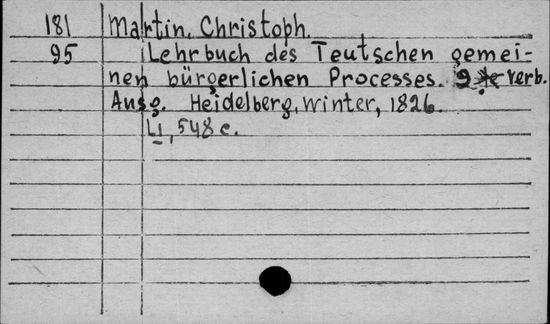 181 Martin, Christoph.
95 Lehrbuch des Teutschen gemei-
nen bürgerlichen Processes. 9te verb.
Ausg. Heidelberg, Winter, 1826.
LI, 548 c.